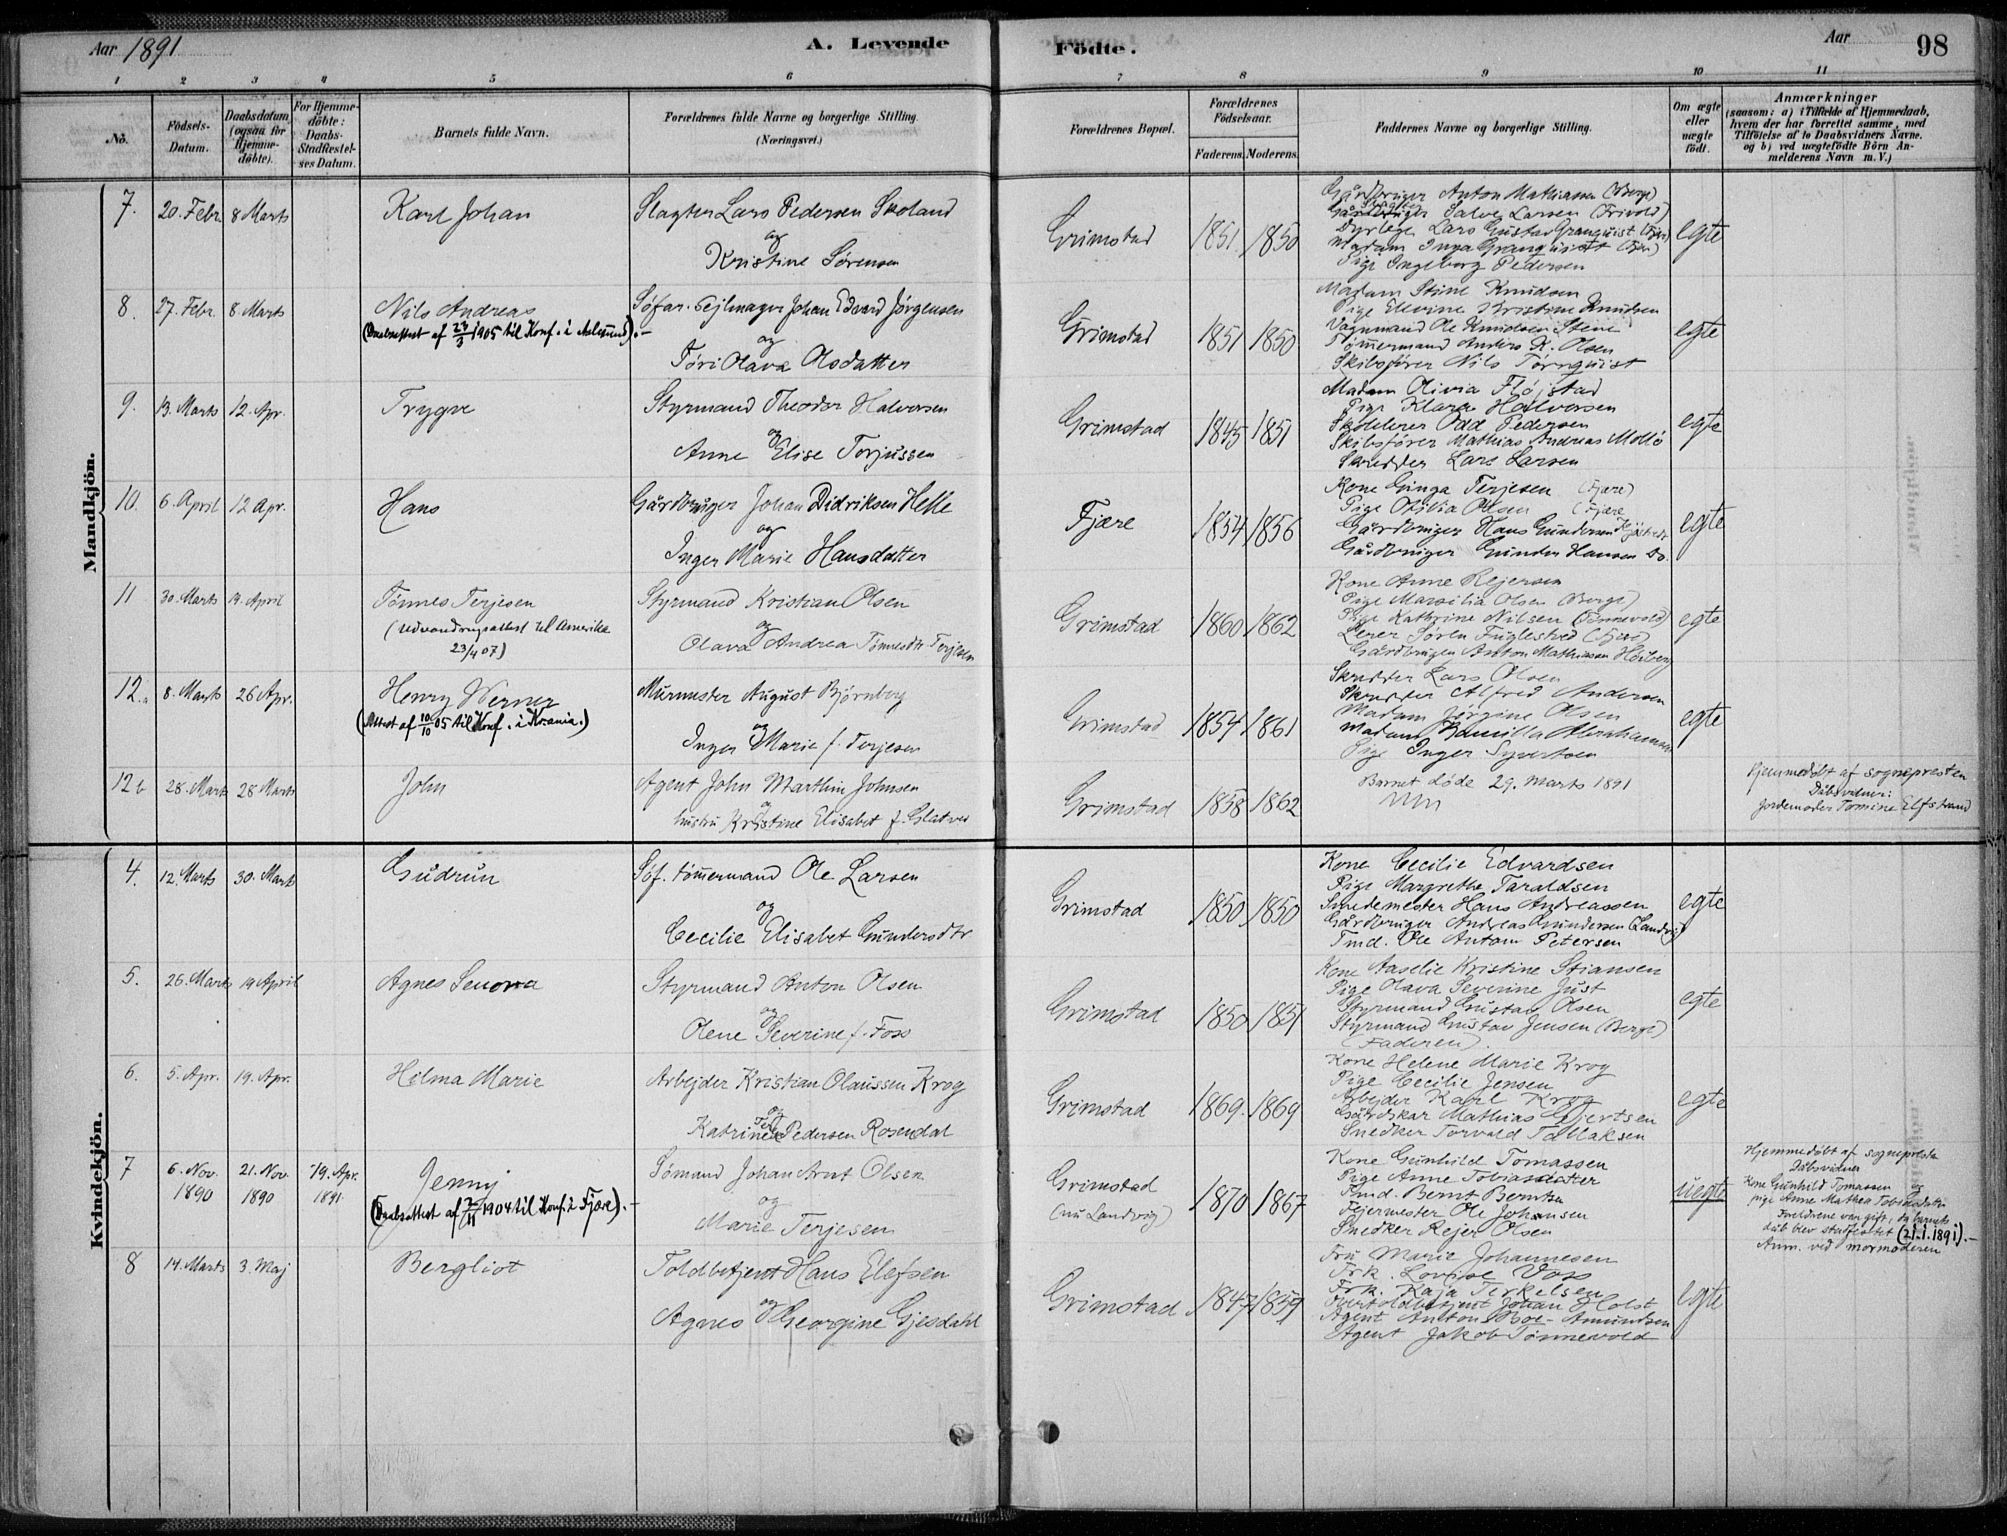 Aar 1891 A. Levende Födte. Aar 98
1 2 3 4 5 6 7 8 9 10 11
No.
Födsels-Datum.
Daabsdatum (ogsaa for Hjemme-döbte).
For Hjemme-döbte: Daabs-Stadfæstel-ses Datum.
Barnets fulde Navn.
Forældrenes fulde Navne og borgerlige Stilling.
(Næringsvei.)
Forældrenes Bopæl.
Forældrenes Födselsaar.
Faderens. Moderens.
Faddernes Navne og borgerlige Stilling.
Om ægte eller uægte födt.
Anmærkninger
(saasom: a) i Tilfælde af Hjemmedaab, hvem der har forrettet samme, med Tilföielse af to Daabsvidners Navne, og b) ved uægtefödte Börn An-melderens Navn m.V.)
Mandkjön.
7. 20. Febr. 8 Marts Karl Johan
Slagter Lars Pedersen Skoland
og
Kristine Sørensen
Grimstad 1851 1850
Gårdbruger Anton Mathiassen (Berge)
Salve Larsen (Frivold)
Dyrlæge Lars Gustav Granquist (Fjære)
Madam Inga Granquist (Fjære)
Pige Ingeborg Pedersen
egte
8. 27. Febr. 8. Marts Nils Andreas
(Daabsattest af 24/3 1905 til Konf. i Aalesund).-
Søfar. Sejlmager Johan Edvard Jörgensen
og
Tøri Olava Olsdatter
Grimstad 1851 1850
Madam Stine Knudsen
Pige Elevine Kristine Knudsen
Vognmand Ole Knudsen Steine
Tømmermand Anders K. Olsen
Skibsfører Nils Tørnquist
egte
9. 13. Marts 12. Apr. Trygve
Styrmand Theodor Halvorsen
og
Anne Elise Torjussen
Grimstad 1845 1851
Madam Olivia Fløjstad
Pige Klara Halvorsen
Odd Pedersen
Skibsfører Mathias Andreas Mollö
Skredder Lars Larsen
egte
10. 6. April 12 Apr. Hans
Gårdbruger Johan Didriksen Helle
og
Inger Marie Hansdatter
Fjære 1854 1856
Kone Ginga Terjesen (Fjære)
Pige Otilia Olsen (Fjære
Gårdbruger Hans Gundersen
Gårdbruger Gunder Hansen Do.
egte
11 30. Marts 19. April Tønnes Terjesen
(Udvandringsattest til Amerika
23/4 07)
Styrmand Kristian Olsen
og
Olava Andrea Tønnesdtr Terjesen
Grimstad 1860 1862
Kone Anne Rejersen
Pige Marsilia Olsen (Berge)
Pige Kathrine Nilsen (Tønnevold)
Lerer Søren Fuglestved (Fjære)
Gårdbruger Anton Mathiassen
egte
12.a 8. Marts 26 Apr. Henry Werner
(Attest af 10/10 05 til Konf. i Krania.)
Murmester August Bjørnberg
og
Inger Marie f. Terjesen
Grimstad 1854 1861
Skredder Lars Olsen
Skredder Alfred Andersen
Madam Jörgine Olsen
Madam Bamilla Abrahamsen
Pige Inger Syvertsen
egte
12b 28. Marts 28 Marts John
Agent John Marthin Johnsen
og
hustru Kristine Elisabet f. Glatved
Grimstad 1858 1862
Barnet døde 29. Marts 1891
Hjemmedøbt af sognepresten
Dåbsvidner:
Jordemoder Tomine Elfstrand
Kvindekjön.
4. 12. Marts 30. Marts Gudrun
Søf. tømmermand Ole Larsen
og
Cecilie Elisabet Gundersdtr
Grimstad 1850 1850
Kone Cecilie Edvardsen
Pige Margrethe Taraldsen
Smedemester Hans Andreassen
Gårdbruger Andreas Gundersen (Landvig)
Tmd. Ole Antom Petersen
egte
5. 26. Marts 19 April Agnes Senora
Styrmand Anton Olsen
og
Olene Severine f. Foss
Grimstad 1850 1851
Kone Aaselie Kristine Stiansen
Pige Olava Severine Just
Styrmand Gustav Olsen
Styrmand Gustav Jensen (Berge)
(Faderen).
egte
6. 5. Apr. 19. Apr. Hilma Marie
Arbejder Kristian Olaussen Krog
og
Katrine Pedersen Rosendal
Grimstad 1869. 1869
Kone Helene Marie Krog
Pige Cecilie Jensen
Arbejder Karl Krog
Gårdskar Mathias Gjertsen
Snedker Torvald Tallaksen
egte
7 6. Nov. 1890 21. Nov. 1890 19. Apr. 1891 Jenny
(Daabsattest af 7/11 1904 til Konf. i Fjære).-
Sømand Johan Arnt Olsen
og
Marie Terjesen
Grimstad
(nu Landvig)
1870 1867
Kone Gunhild Tomassen
Pige Anne Tobiasdatter
Tmd. Bernt Berntsen
Fejermester Ole Johansen
Snedker Rejer Olsen
uegte
Hjemmedøbt af sogneprest
Dåbsvidner
Kone Gunhild Tomassen og
pige Anne Mathea Tobiasdatter
Foreldrene var gift, da barnets
dåb blev stadfestet (21.1.1891).-
Anm. ved mormoderen
8 14. Marts 3. Maj Bergliot
Toldbetjent Hans Elefsen
og
Agnes Georgine Gjesdahl
Grimstad 1847 1859
Fru Marie Johannesen
Frk. Lovise Voss
Frk. Kaja Terkelsen
Overtoldbetjent Johan Holst
Agent Anton Boe-Amundsen
Agent Jakob Tønnevold
egte